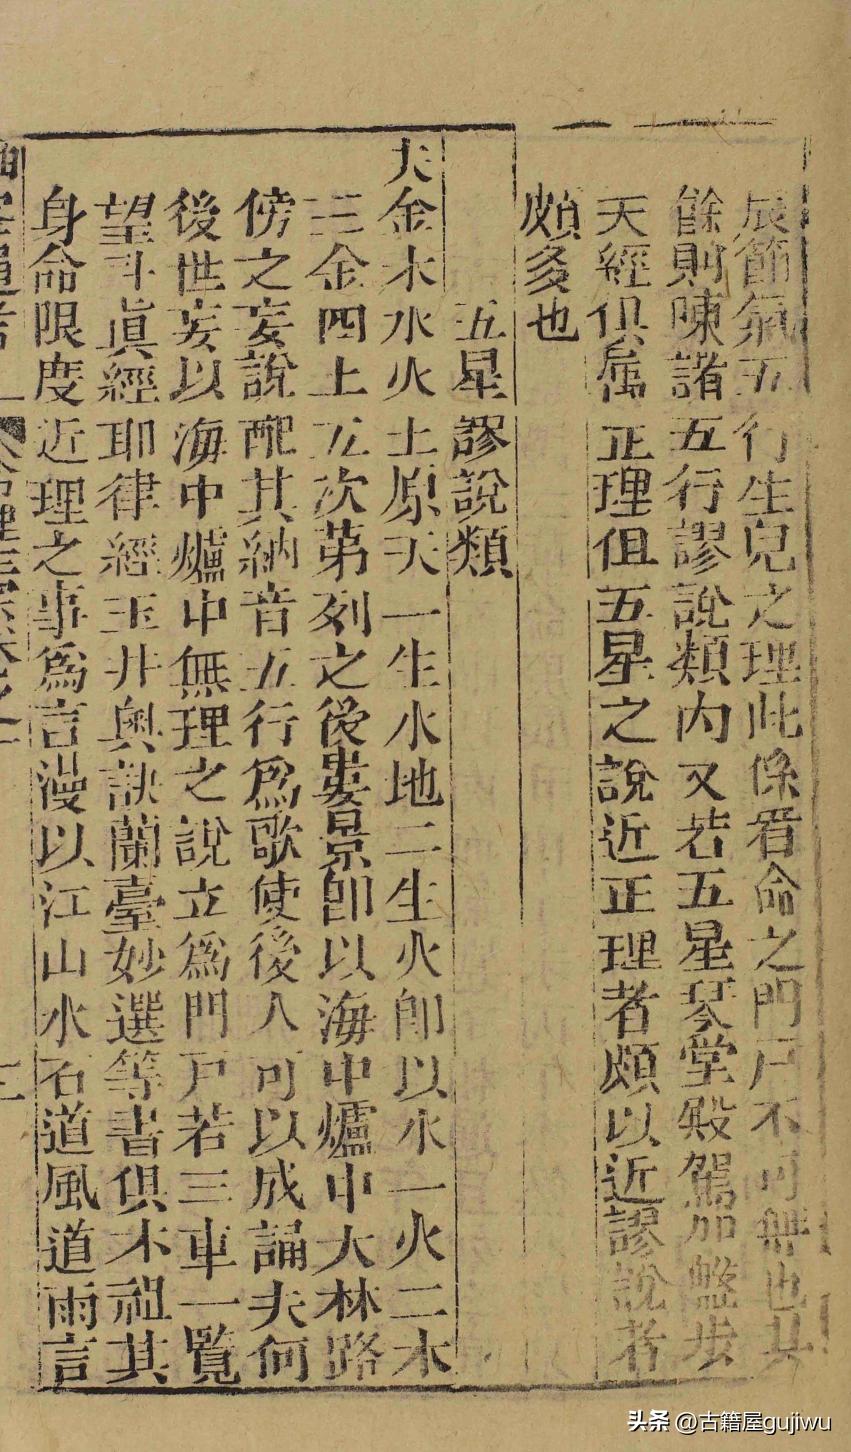 辰節氣五行生克之理此係看命之門戶不可無也其
餘則陳諸五行謬說類內又若五星琴堂殿駕加盤步
天經俱属正理但五星之說近正理者頗以近謬說者
頗多也
五星謬說類
夫金木水火土原天一生水地二生火卽以水一火二木
三金四土五次第列之後婁景卽以海中爐中大林路
傍之妄說配其納音五行爲歌使後人可以成誦夫何
後世妄以海中爐中無理之說立爲門戶若三車一覽
望斗眞經耶律經玉井奧訣蘭臺妙選等書俱不祖其
身命限度近理之事爲言漫以江山水石道風道雨言
三
头条 @古籍屋gujiwu